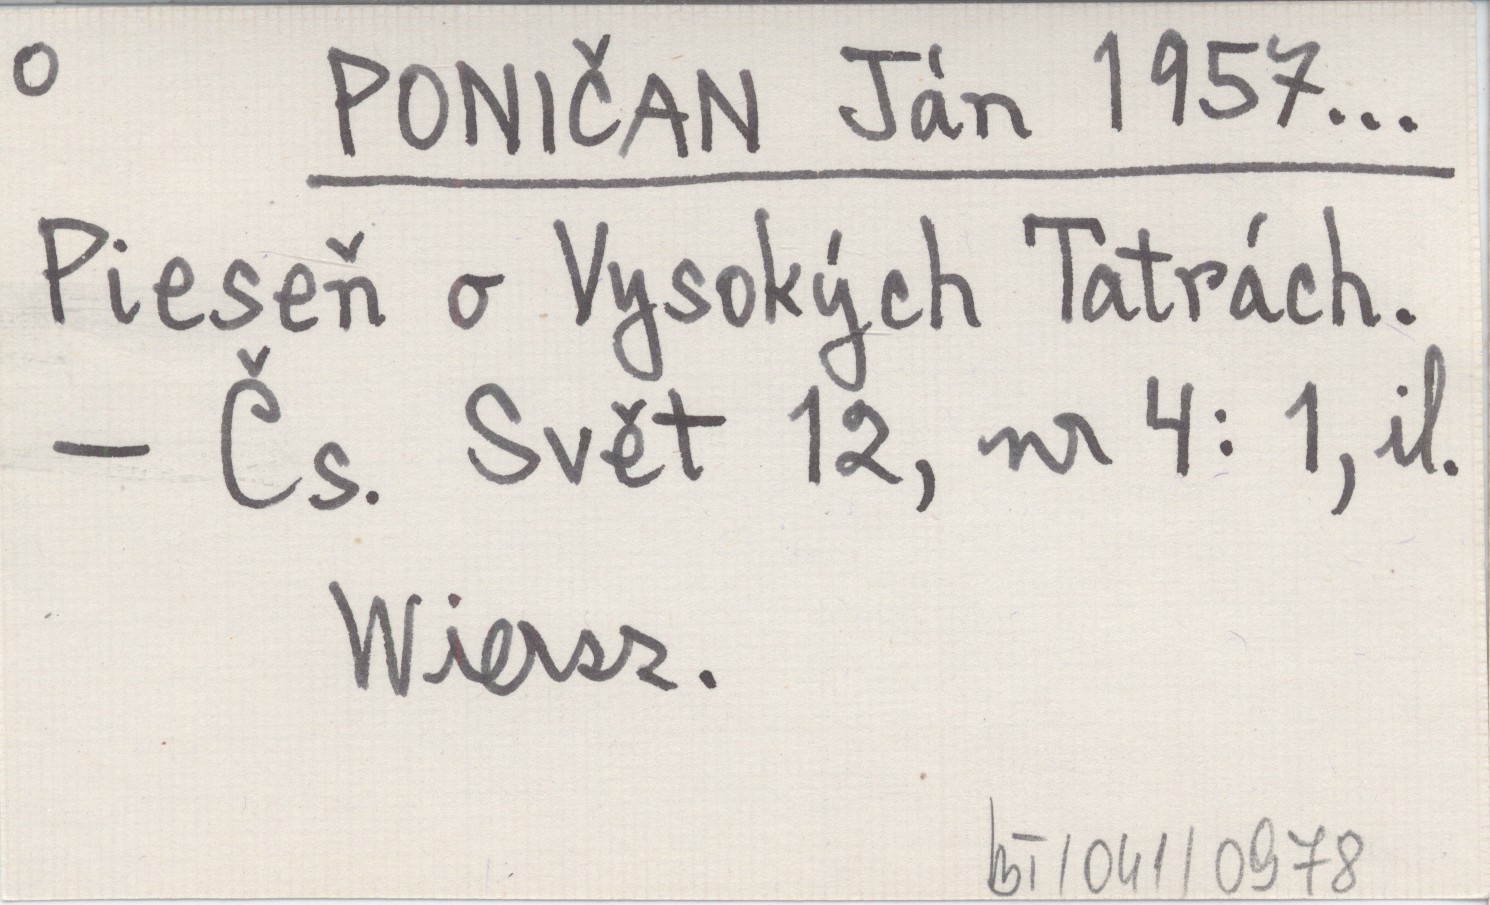 o PONIČAN Ján 1957...
Pieseň o Vysokých Tatrách.
— Čs. Svět 12, nr 4: 1, il.
Wiersz.
BT/041/0978